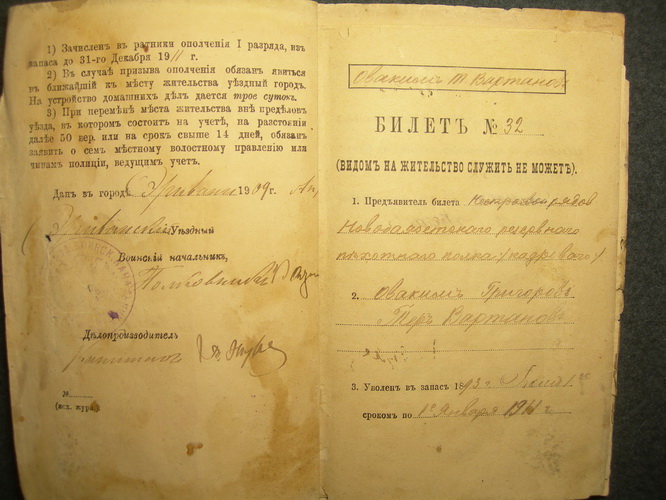 1) Зачисленъ въ ратники ополченія I разряда, изъ
запаса до 31-го Декабря 1911 г.
2) Въ случаѣ призыва ополченія обязан явиться
въ ближайшій къ мѣсту жительства уѣздный городъ.
На устройство домашнихъ дѣлъ дается трое сутокъ.
3) При перемѣнѣ мѣста жительства внѣ предѣловъ
уѣзда, въ которомъ состоитъ на учетѣ, на разстояніи
далѣе 50 вер. или на срокъ свыше 14 дней, обязан
заявить о семъ мѣстному волостному правленію или
чинамъ полиціи, ведущимъ учет.
Данъ въ городѣ Эривани 1909 г.
Эриванскій Уѣздный
Воинскій начальникъ,
Полковникъ
Дѣлопроизводитель
№
(исх. журн.)
Овакимъ Т. Вартановъ
БИЛЕТЪ № 32
(ВИДОМЪ НА ЖИТЕЛЬСТВО СЛУЖИТЬ НЕ МОЖЕТЪ).
1. Предъявитель билета рядов
резервнаго
пѣхотнаго полка (кадроваго)
2. Овакимъ Григоровъ
Теръ Вартановъ
3. Уволенъ въ запасъ 1893 г.
срокомъ по 1е Января 1911 г.